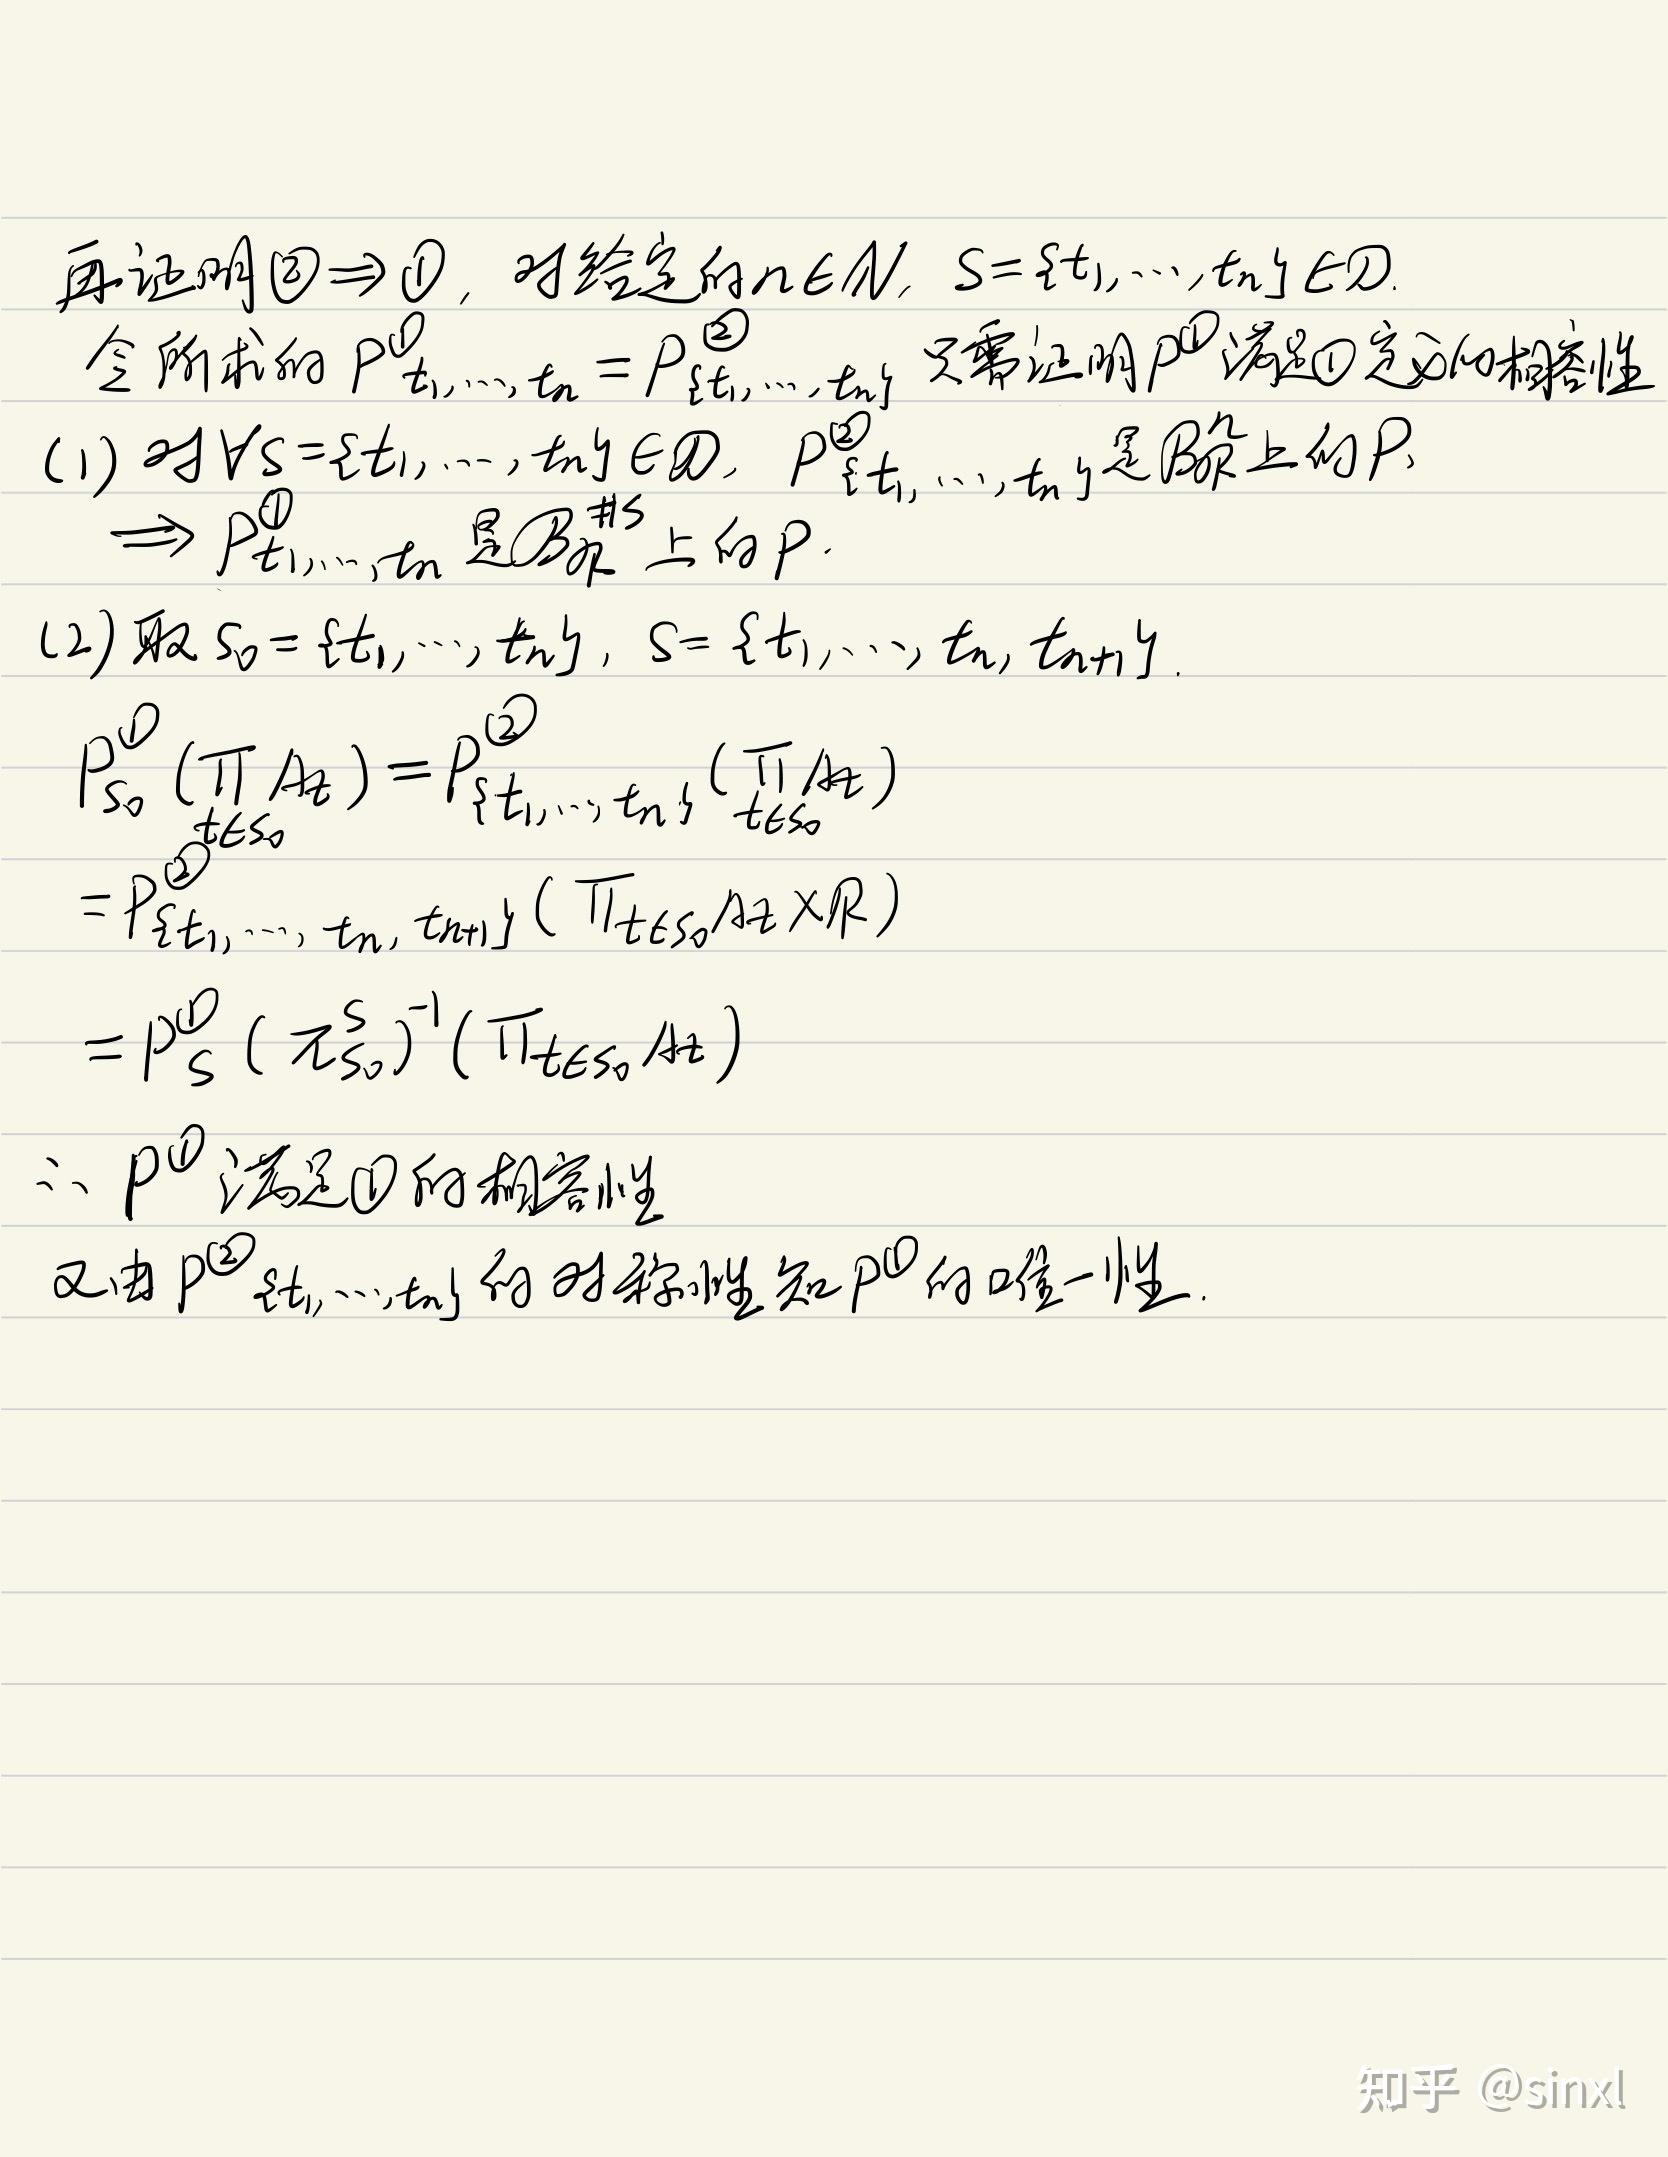 再证明②⇒①, 对给定的n∈N, S={t₁,…,tₙ}∈𝒟.
令所求的 P^①_{t₁,…,tₙ} = P^②_{{t₁,…,tₙ}} 只需证明P^①满足①定义的相容性
(1) 对∀S={t₁,…,tₙ}∈𝒟, P^②_{{t₁,…,tₙ}}是ℬ_ℝ^n上的P,
⇒ P^①_{t₁,…,tₙ} 是ℬ_ℝ^{#S}上的P.
(2) 取S₀={t₁,…,tₙ}, S={t₁,…,tₙ,tₙ₊₁}.
P^①_{S₀}(∏_{t∈S₀} A_t) = P^②_{{t₁,…,tₙ}}(∏_{t∈S₀} A_t)
= P^②_{{t₁,…,tₙ,tₙ₊₁}}(∏_{t∈S₀} A_t × ℝ)
= P^①_S (π^S_{S₀})^{-1}(∏_{t∈S₀} A_t)
∴ P^① 满足①的相容性
又由P^②_{{t₁,…,tₙ}}的对称性知P^①的唯一性.
知乎 @sinxl